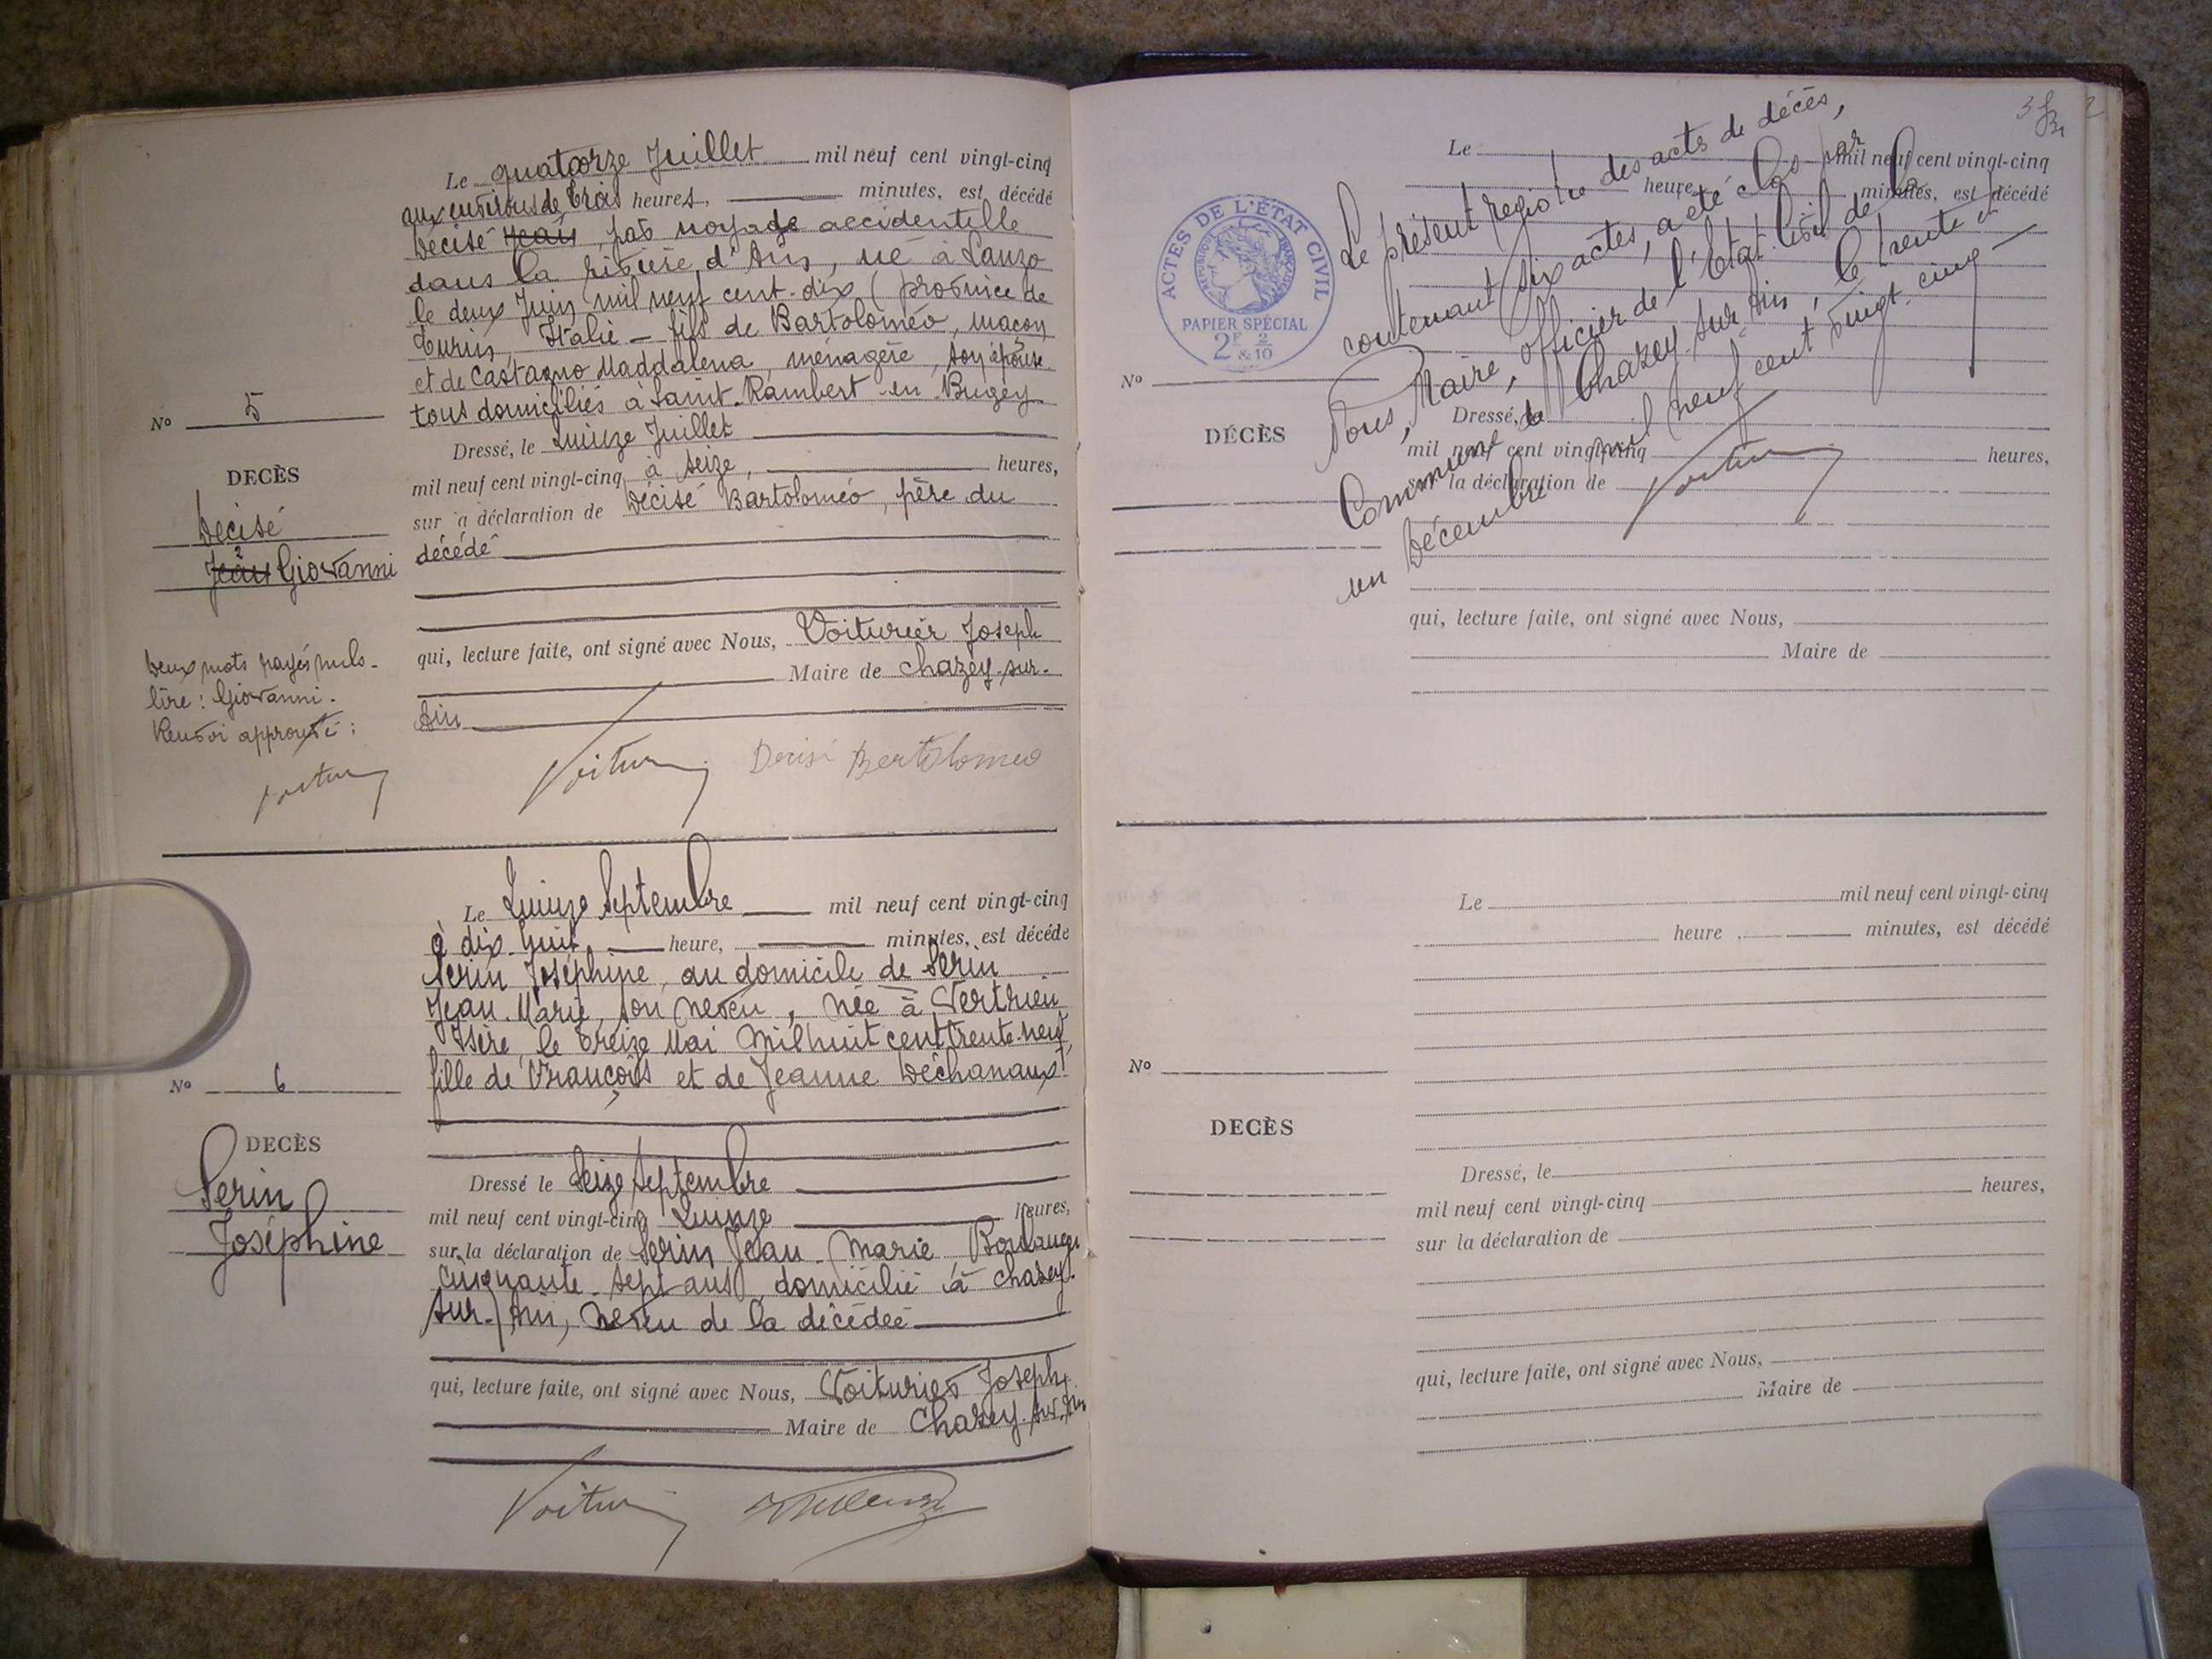 Le quatorze Juillet mil neuf cent vingt-cinq
aux environs de trois heures, minutes, est décédé
Décisé Jean, par noyade accidentelle
dans la rivière d'Ain, né à Lanzo
le deux Juin mil neuf cent-dix (province de
Turin, Italie – fils de Bartoloméo, maçon
et de Castagno Maddalena, ménagère, son épouse
tous domiciliés à Saint-Rambert-en-Bugey
No 5
DECÈS
Décisé
Jean Giovanni
Deux mots rayés nuls -
lire : Giovanni.
Renvoi approuvé :
Dressé, le Quinze Juillet
mil neuf cent vingt-cinq à seize, heures,
sur la déclaration de Décisé Bartoloméo, père du
décédé
qui, lecture faite, ont signé avec Nous, Voiturier Joseph
Maire de Chazey-sur-
Ain
Decisi Bertolomeo
Le Quinze Septembre mil neuf cent vingt-cinq
à dix-huit heure, minutes, est décédé
Serin Joséphine, au domicile de Serin
Jean-Marie, son neveu, née à Vertrieu
Isère, le treize Mai mil huit cent trente-neuf,
fille de François et de Jeanne Déchanaux
No 6
DECÈS
Serin
Joséphine
Dressé le Seize Septembre
mil neuf cent vingt-cinq Quinze heures,
sur la déclaration de Serin Jean-Marie Boulanger
cinquante-sept ans, domicilié à Chazey-
sur-Ain, neveu de la décédée
qui, lecture faite, ont signé avec Nous, Voiturier Joseph
Maire de Chazey-sur-Ain
ACTES DE L'ÉTAT CIVIL
PAPIER SPÉCIAL
2F 2/10
& 10
Le mil neuf cent vingt-cinq
heure minutes, est décédé
Le présent registre des actes de décès,
contenant six actes, a été clos par
Nous, Maire, officier de l'Etat Civil de la
Commune de Chazey-sur-Ain, le trente et
un Décembre mil neuf cent vingt-cinq
No
DÉCÈS
Dressé, le
mil neuf cent vingt-cinq heures,
sur la déclaration de
qui, lecture faite, ont signé avec Nous,
Maire de
Le mil neuf cent vingt-cinq
heure , minutes, est décédé
No
DECÈS
Dressé, le
mil neuf cent vingt-cinq heures,
sur la déclaration de
qui, lecture faite, ont signé avec Nous,
Maire de